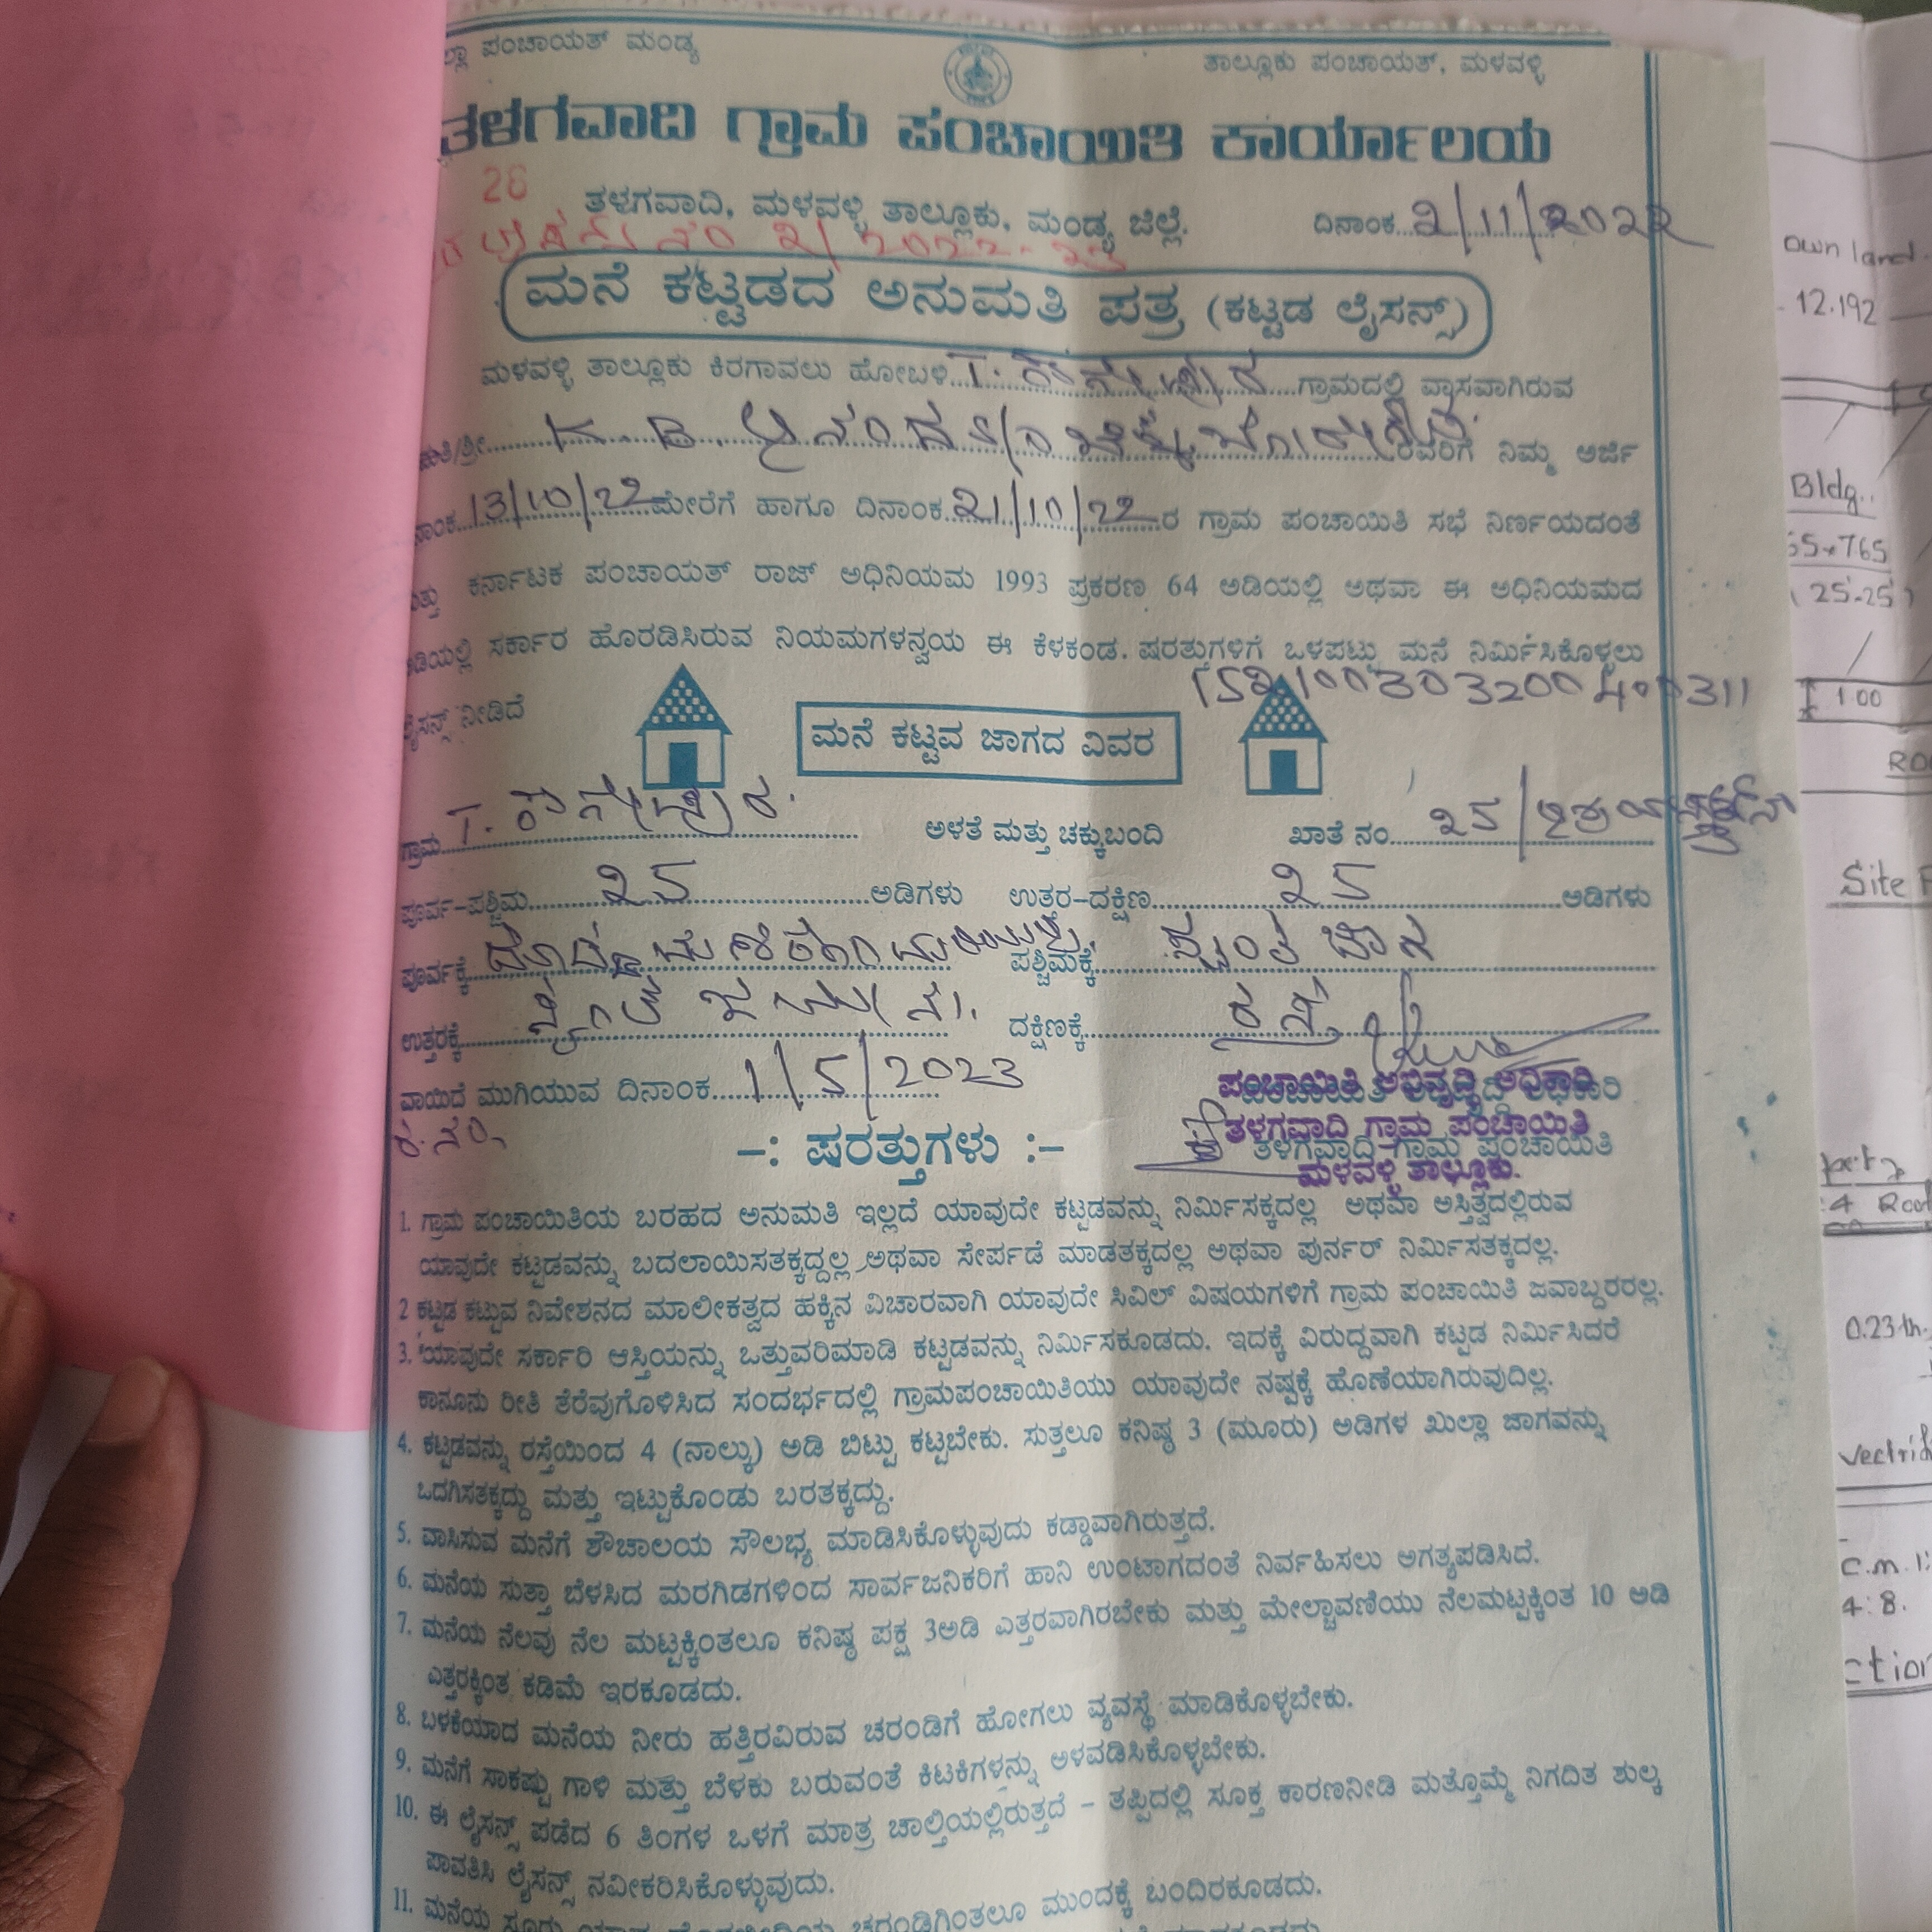 ಪಂಚಾಯತ್ ಮಂಡ್ಯ
ತಾಲ್ಲೂಕು ಪಂಚಾಯತ್, ಮಳವಳ್ಳಿ
ತಳಗವಾದಿ ಗ್ರಾಮ ಪಂಚಾಯಿತಿ ಕಾರ್ಯಾಲಯ
26
ತಳಗವಾದಿ, ಮಳವಳ್ಳಿ ತಾಲ್ಲೂಕು, ಮಂಡ್ಯ ಜಿಲ್ಲೆ.
ದಿನಾಂಕ 2/11/2022
ನಂ 2/2022-23
ಮನೆ ಕಟ್ಟಡದ ಅನುಮತಿ ಪತ್ರ (ಕಟ್ಟಡ ಲೈಸನ್ಸ್)
ಮಳವಳ್ಳಿ ತಾಲ್ಲೂಕು ಕಿರಗಾವಲು ಹೋಬಳಿ T. ಗ್ರಾಮದಲ್ಲಿ ವ್ಯಾಸವಾಗಿರುವ
ಮತಿ/ಶ್ರೀ K. B. ರವರಿಗೆ ನಿಮ್ಮ ಅರ್ಜಿ
ನಾಂಕ 13/10/22 ಮೇರೆಗೆ ಹಾಗೂ ದಿನಾಂಕ 21/10/22 ರ ಗ್ರಾಮ ಪಂಚಾಯಿತಿ ಸಭೆ ನಿರ್ಣಯದಂತೆ
ತ್ತು ಕರ್ನಾಟಕ ಪಂಚಾಯತ್ ರಾಜ್ ಅಧಿನಿಯಮ 1993 ಪ್ರಕರಣ 64 ಅಡಿಯಲ್ಲಿ ಅಥವಾ ಈ ಅಧಿನಿಯಮದ
ಡಿಯಲ್ಲಿ ಸರ್ಕಾರ ಹೊರಡಿಸಿರುವ ನಿಯಮಗಳನ್ವಯ ಈ ಕೆಳಕಂಡ. ಷರತ್ತುಗಳಿಗೆ ಒಳಪಟ್ಟು ಮನೆ ನಿರ್ಮಿಸಿಕೊಳ್ಳಲು
ಲೈಸನ್ಸ್ ನೀಡಿದೆ
152100303200400311
ಮನೆ ಕಟ್ಟುವ ಜಾಗದ ವಿವರ
ಗ್ರಾಮ T. ಅಳತೆ ಮತ್ತು ಚಕ್ಕುಬಂದಿ ಖಾತೆ ನಂ. 25/
ಪೂರ್ವ-ಪಶ್ಚಿಮ 25 ಅಡಿಗಳು ಉತ್ತರ-ದಕ್ಷಿಣ 25 ಅಡಿಗಳು
ಪೂರ್ವಕ್ಕೆ ಪಶ್ಚಿಮಕ್ಕೆ ಸ್ವಂತ ಜಾಗ
ಉತ್ತರಕ್ಕೆ ದಕ್ಷಿಣಕ್ಕೆ ರಸ್ತೆ
ವಾಯಿದೆ ಮುಗಿಯುವ ದಿನಾಂಕ 1/5/2023
ಪಂಚಾಯಿತಿ ಅಭಿವೃದ್ಧಿ ಅಧಿಕಾರಿ
ತಳಗವಾದಿ ಗ್ರಾಮ ಪಂಚಾಯಿತಿ
ಮಳವಳ್ಳಿ ತಾಲ್ಲೂಕು.
-: ಷರತ್ತುಗಳು :-
1. ಗ್ರಾಮ ಪಂಚಾಯಿತಿಯ ಬರಹದ ಅನುಮತಿ ಇಲ್ಲದೆ ಯಾವುದೇ ಕಟ್ಟಡವನ್ನು ನಿರ್ಮಿಸಕ್ಕದಲ್ಲ ಅಥವಾ ಅಸ್ತಿತ್ವದಲ್ಲಿರುವ
ಯಾವುದೇ ಕಟ್ಟಡವನ್ನು ಬದಲಾಯಿಸತಕ್ಕದ್ದಲ್ಲ ಅಥವಾ ಸೇರ್ಪಡೆ ಮಾಡತಕ್ಕದಲ್ಲ ಅಥವಾ ಪುರ್ನರ್ ನಿರ್ಮಿಸತಕ್ಕದಲ್ಲ.
2 ಕಟ್ಟಡ ಕಟ್ಟುವ ನಿವೇಶನದ ಮಾಲೀಕತ್ವದ ಹಕ್ಕಿನ ವಿಚಾರವಾಗಿ ಯಾವುದೇ ಸಿವಿಲ್ ವಿಷಯಗಳಿಗೆ ಗ್ರಾಮ ಪಂಚಾಯಿತಿ ಜವಾಬ್ದರರಲ್ಲ.
3. ಯಾವುದೇ ಸರ್ಕಾರಿ ಆಸ್ತಿಯನ್ನು ಒತ್ತುವರಿಮಾಡಿ ಕಟ್ಟಡವನ್ನು ನಿರ್ಮಿಸಕೂಡದು. ಇದಕ್ಕೆ ವಿರುದ್ದವಾಗಿ ಕಟ್ಟಡ ನಿರ್ಮಿಸಿದರೆ
ಕಾನೂನು ರೀತಿ ತೆರೆವುಗೊಳಿಸಿದ ಸಂದರ್ಭದಲ್ಲಿ ಗ್ರಾಮಪಂಚಾಯಿತಿಯು ಯಾವುದೇ ನಷ್ಟಕ್ಕೆ ಹೊಣೆಯಾಗಿರುವುದಿಲ್ಲ.
4. ಕಟ್ಟಡವನ್ನು ರಸ್ತೆಯಿಂದ 4 (ನಾಲ್ಕು) ಅಡಿ ಬಿಟ್ಟು ಕಟ್ಟಬೇಕು. ಸುತ್ತಲೂ ಕನಿಷ್ಠ 3 (ಮೂರು) ಅಡಿಗಳ ಖುಲ್ಲಾ ಜಾಗವನ್ನು
ಒದಗಿಸತಕ್ಕದ್ದು ಮತ್ತು ಇಟ್ಟುಕೊಂಡು ಬರತಕ್ಕದ್ದು.
5. ವಾಸಿಸುವ ಮನೆಗೆ ಶೌಚಾಲಯ ಸೌಲಭ್ಯ ಮಾಡಿಸಿಕೊಳ್ಳುವುದು ಕಡ್ಡಾವಾಗಿರುತ್ತದೆ.
6. ಮನೆಯ ಸುತ್ತಾ ಬೆಳಸಿದ ಮರಗಿಡಗಳಿಂದ ಸಾರ್ವಜನಿಕರಿಗೆ ಹಾನಿ ಉಂಟಾಗದಂತೆ ನಿರ್ವಹಿಸಲು ಅಗತ್ಯಪಡಿಸಿದೆ.
7. ಮನೆಯ ನೆಲವು ನೆಲ ಮಟ್ಟಕ್ಕಿಂತಲೂ ಕನಿಷ್ಠ ಪಕ್ಷ 3ಅಡಿ ಎತ್ತರವಾಗಿರಬೇಕು ಮತ್ತು ಮೇಲ್ಚಾವಣಿಯು ನೆಲಮಟ್ಟಕ್ಕಿಂತ 10 ಅಡಿ
ಎತ್ತರಕ್ಕಿಂತ ಕಡಿಮೆ ಇರಕೂಡದು.
8. ಬಳಕೆಯಾದ ಮನೆಯ ನೀರು ಹತ್ತಿರವಿರುವ ಚರಂಡಿಗೆ ಹೋಗಲು ವ್ಯವಸ್ಥೆ ಮಾಡಿಕೊಳ್ಳಬೇಕು.
9. ಮನೆಗೆ ಸಾಕಷ್ಟು ಗಾಳಿ ಮತ್ತು ಬೆಳಕು ಬರುವಂತೆ ಕಿಟಕಿಗಳನ್ನು ಅಳವಡಿಸಿಕೊಳ್ಳಬೇಕು.
10. ಈ ಲೈಸನ್ಸ್ ಪಡೆದ 6 ತಿಂಗಳ ಒಳಗೆ ಮಾತ್ರ ಚಾಲ್ತಿಯಲ್ಲಿರುತ್ತದೆ - ತಪ್ಪಿದಲ್ಲಿ ಸೂಕ್ತ ಕಾರಣನೀಡಿ ಮತ್ತೊಮ್ಮೆ ನಿಗದಿತ ಶುಲ್ಕ
ಪಾವತಿಸಿ ಲೈಸನ್ಸ್ ನವೀಕರಿಸಿಕೊಳ್ಳುವುದು.
11. ಮನೆಯ ಚರಂಡಿಗಿಂತಲೂ ಮುಂದಕ್ಕೆ ಬಂದಿರಕೂಡದು.
own land.
12.192
Bldg.
(25-25)
1.00
Site
4 Roof
0.23
C.m. 1:
4:8.